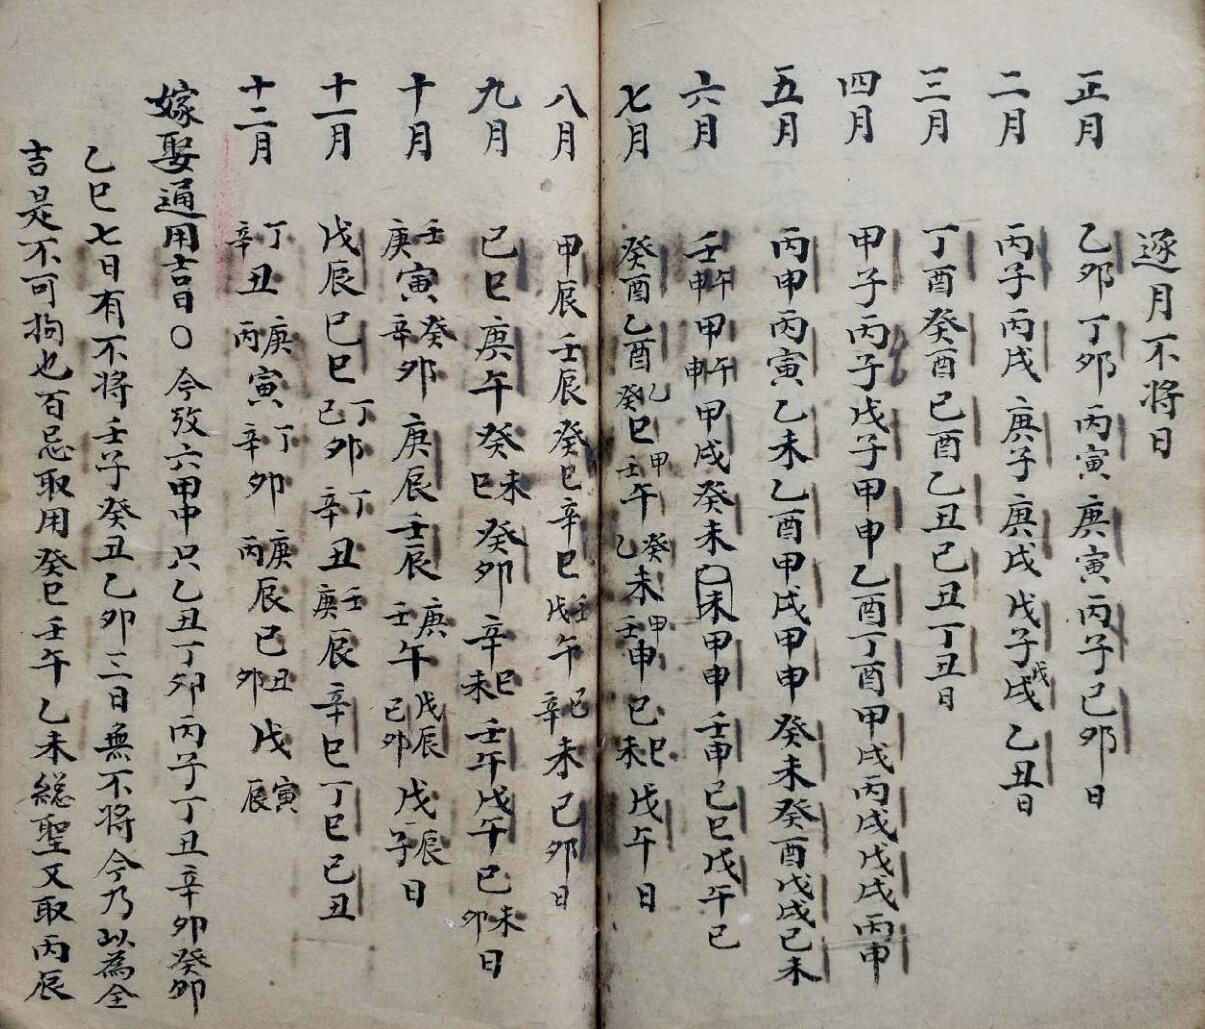 逐月不将日
正月 乙卯丁卯丙寅庚寅丙子己卯日
二月 丙子丙戌庚子庚戌戊子戊戌乙丑日
三月 丁酉癸酉已酉乙丑已丑丁丑日
四月 甲子丙子戊子甲申乙酉丁酉甲戌丙戌戊戌丙申
五月 丙申丙寅乙未乙酉甲戌甲申癸未癸酉戊戌己未
六月 壬午申甲午申甲戌癸未乙未甲申壬申己巳戊午已
七月 癸酉乙酉乙癸巳甲壬午癸乙未甲壬申已巳未戊午日
八月 甲辰壬辰癸巳辛巳壬戊午已辛未已卯日
九月 已巳庚午癸未巳癸卯辛巳未壬午戊午已未卯日
十月 壬庚寅癸辛卯庚辰壬辰庚壬午戊辰己卯戊辰子日
十一月 戊辰巳巳丁己卯丁辛丑壬庚辰辛巳丁巳已丑
十二月 丁辛丑庚丙寅丁辛卯庚丙辰已丑卯戊寅辰
嫁娶通用吉日〇今攷六甲中只乙丑丁卯丙子丁丑辛卯癸卯
乙巳七日有不将壬子癸丑乙卯三日無不将今乃以為全
吉是不可拘也百忌取用癸巳壬午乙未総聖又取丙辰